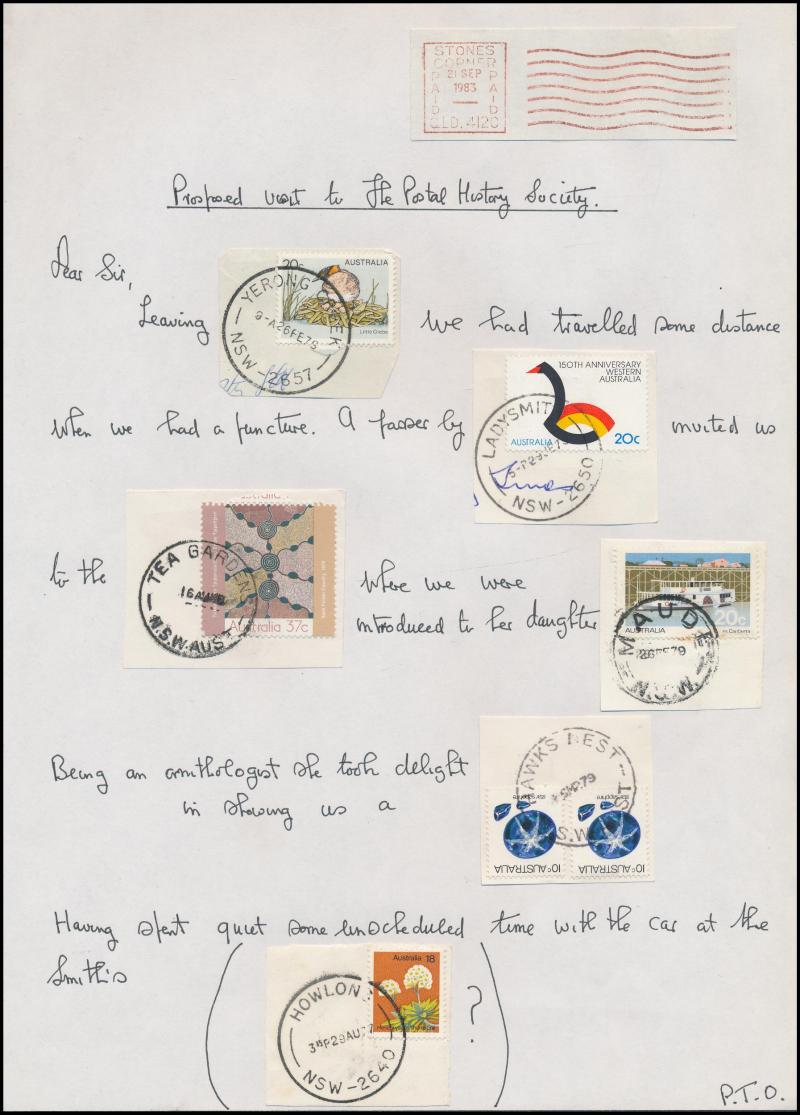 STONES
CORNER
PAID 21 SEP PAID
1983
QLD. 4120
Proposed visit to the Postal History Society.
Dear Sir,
20c AUSTRALIA
Little Grebe
YERONG CREEK
9-A26FE79
NSW-2657
Leaving We had travelled some distance
150TH ANNIVERSARY
WESTERN
AUSTRALIA
AUSTRALIA 20c
LADYSMITH
NSW-2650
when we had a puncture. A passer by invited us
Australia
Australia 37c
TEA GARDENS
16AU
N.S.W. AUST
to the where we were
introduced to her daughter
20c
AUSTRALIA
MAUDE
26FE79
N.S.W.
Being an ornithologist she took delight
in showing us a
HAWKS NEST
79
star sapphire star sapphire
10c AUSTRALIA 10c AUSTRALIA
Having spent quiet some unscheduled time with the car at the
Smith's ( ?)
Australia 18
HOWLONG
315P29AU7
NSW-2640
P.T.O.